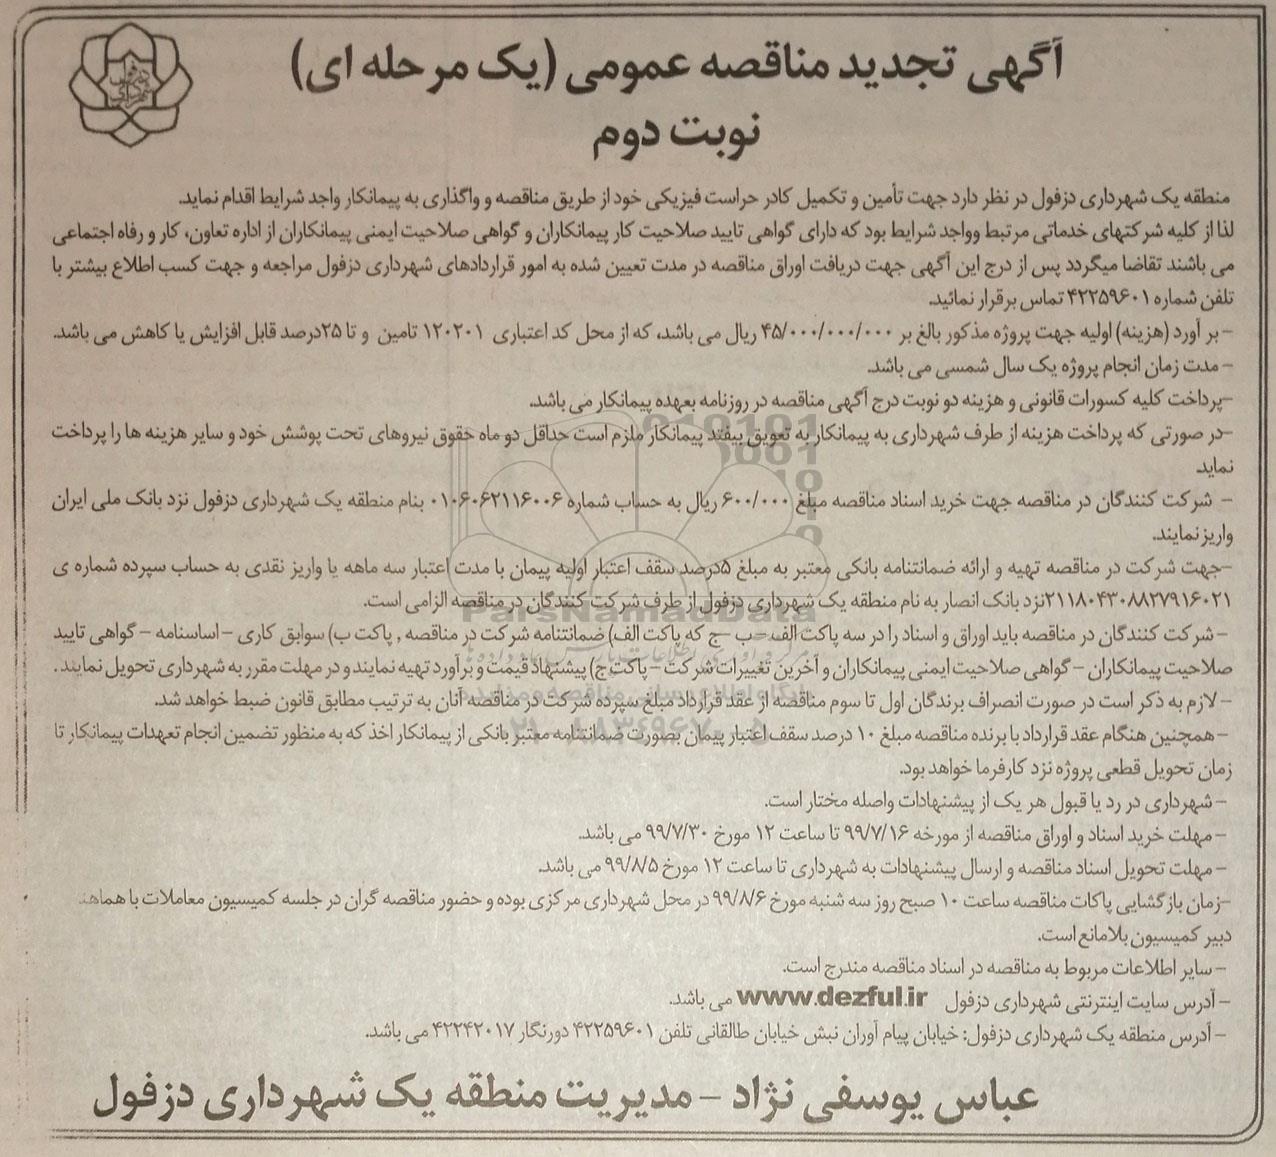 آگهی تجدید مناقصه عمومی (یک مرحله ای)
نوبت دوم
منطقه یک شهرداری دزفول در نظر دارد جهت تأمین و تکمیل کادر حراست فیزیکی خود از طریق مناقصه و واگذاری به پیمانکار واجد شرایط اقدام نماید.
لذا از کلیه شرکتهای خدماتی مرتبط وواجد شرایط بود که دارای گواهی تایید صلاحیت کار پیمانکاران و گواهی صلاحیت ایمنی پیمانکاران از اداره تعاون، کار و رفاه اجتماعی
می باشند تقاضا میگردد پس از درج این آگهی جهت دریافت اوراق مناقصه در مدت تعیین شده به امور قراردادهای شهرداری دزفول مراجعه و جهت کسب اطلاع بیشتر با
تلفن شماره ۴۲۲۵۹۶۰۱ تماس برقرار نمائید.
- بر آورد (هزینه) اولیه جهت پروژه مذکور بالغ بر ۴۵/۰۰۰/۰۰۰/۰۰۰ ریال می باشد، که از محل کد اعتباری ۱۲۰۲۰۱ تامین و تا ۲۵درصد قابل افزایش یا کاهش می باشد.
- مدت زمان انجام پروژه یک سال شمسی می باشد.
-پرداخت کلیه کسورات قانونی و هزینه دو نوبت درج آگهی مناقصه در روزنامه بعهده پیمانکار می باشد.
-در صورتی که پرداخت هزینه از طرف شهرداری به پیمانکار به تعویق بیفتد پیمانکار ملزم است حداقل دو ماه حقوق نیروهای تحت پوشش خود و سایر هزینه ها را پرداخت
نماید.
- شرکت کنندگان در مناقصه جهت خرید اسناد مناقصه مبلغ ۶۰۰/۰۰۰ ریال به حساب شماره ۰۱۰۶۰۶۲۱۱۶۰۰۶ بنام منطقه یک شهرداری دزفول نزد بانک ملی ایران
واریز نمایند.
-جهت شرکت در مناقصه تهیه و ارائه ضمانتنامه بانکی معتبر به مبلغ ۵درصد سقف اعتبار اولیه پیمان با مدت اعتبار سه ماهه یا واریز نقدی به حساب سپرده شماره ی
۲۱۱۸۰۴۳۰۸۸۲۷۹۱۶۰۲۱نزد بانک انصار به نام منطقه یک شهرداری دزفول از طرف شرکت کنندگان در مناقصه الزامی است.
- شرکت کنندگان در مناقصه باید اوراق و اسناد را در سه پاکت الف – ب – ج که پاکت الف) ضمانتنامه شرکت در مناقصه , پاکت ب) سوابق کاری – اساسنامه – گواهی تایید
صلاحیت پیمانکاران – گواهی صلاحیت ایمنی پیمانکاران و آخرین تغییرات شرکت – پاکت ج) پیشنهاد قیمت و برآورد تهیه نمایند و در مهلت مقرر به شهرداری تحویل نمایند .
- لازم به ذکر است در صورت انصراف برندگان اول تا سوم مناقصه از عقد قرارداد مبلغ سپرده شرکت در مناقصه آنان به ترتیب مطابق قانون ضبط خواهد شد.
- همچنین هنگام عقد قرارداد با برنده مناقصه مبلغ ۱۰ درصد سقف اعتبار پیمان بصورت ضمانتنامه معتبر بانکی از پیمانکار اخذ که به منظور تضمین انجام تعهدات پیمانکار تا
زمان تحویل قطعی پروژه نزد کارفرما خواهد بود.
- شهرداری در رد یا قبول هر یک از پیشنهادات واصله مختار است.
- مهلت خرید اسناد و اوراق مناقصه از مورخه ۹۹/۷/۱۶ تا ساعت ۱۲ مورخ ۹۹/۷/۳۰ می باشد.
- مهلت تحویل اسناد مناقصه و ارسال پیشنهادات به شهرداری تا ساعت ۱۲ مورخ ۹۹/۸/۵ می باشد.
-زمان بازگشایی پاکات مناقصه ساعت ۱۰ صبح روز سه شنبه مورخ ۹۹/۸/۶ در محل شهرداری مرکزی بوده و حضور مناقصه گران در جلسه کمیسیون معاملات با
دبیر کمیسیون بلامانع است.
- سایر اطلاعات مربوط به مناقصه در اسناد مناقصه مندرج است.
- آدرس سایت اینترنتی شهرداری دزفول www.dezful.ir می باشد.
- آدرس منطقه یک شهرداری دزفول: خیابان پیام آوران نبش خیابان طالقانی تلفن ۴۲۲۵۹۶۰۱ دورنگار ۴۲۲۴۲۰۱۷ می باشد.
عباس یوسفی نژاد - مدیریت منطقه یک شهرداری دزفول
ParsNamadData